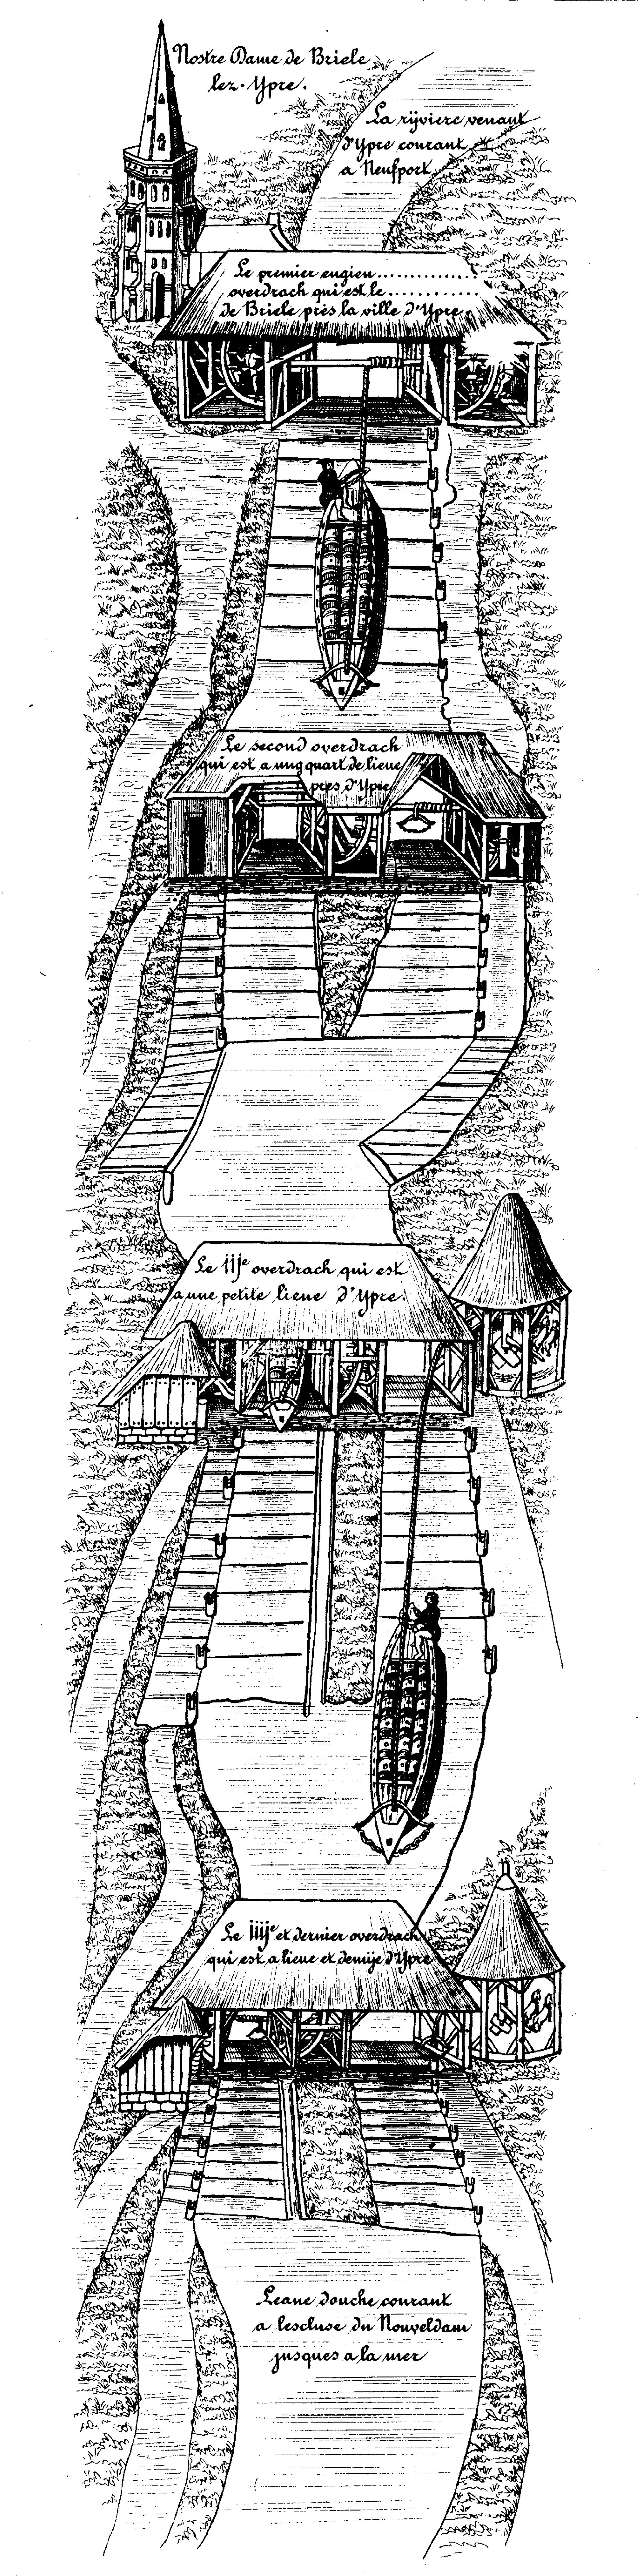 Nostre Dame de Briele
lez-Ypre.
La rijviere venant
d'Ypre courant
a Neufport
Le premier engien..............
overdrach qui est le............
de Briele près la ville d'Ypre.
Le second overdrach
qui est a ung quart de lieue
pres d'Ypre
Le iije overdrach qui est
a une petite lieue d'Ypre.
Le iiije et dernier overdrach
qui est a lieue et demije d'Ypre
Leaue douche courant
a lescluse du Nouveldam
jusques a la mer